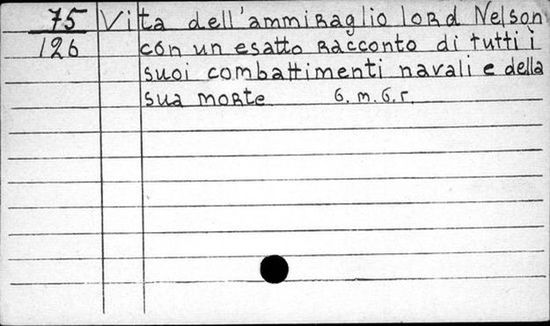 75 Vita dell'ammiraglio lord Nelson
126 con un esatto racconto di tutti i
suoi combattimenti navali e della
sua morte 6. m. 6. r.